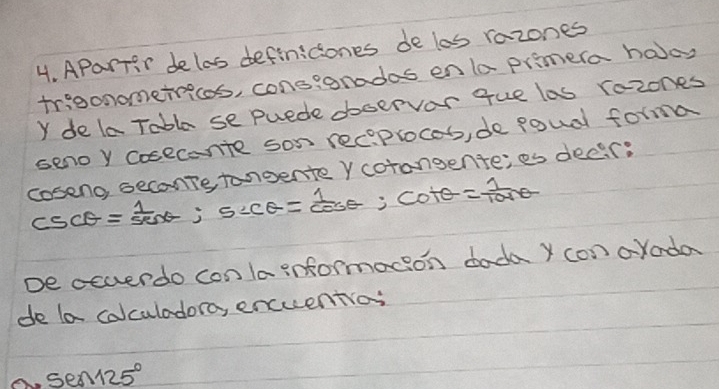 4. APartir de las definiciones de las razones
trigonometricas, consignadas en la primera hoja,
y de la Tabla se Puede observar que las razones
seno y cosecante son reciprocas, de igual forma
coseno, secante, tangente y cotangente; es decir:
cscθ = 1/senθ ; secθ = 1/cosθ ; cotθ = 1/tanθ
De acuerdo con la información dada y con ayada
de la calculadora, encuentra:
a. sen125°